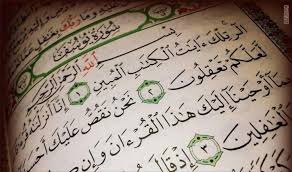 سُورَةُ يُوسُفَ
بِسْمِ اللَّهِ الرَّحْمَٰنِ الرَّحِيمِ
الٓر تِلْكَ ءَايَٰتُ ٱلْكِتَٰبِ ٱلْمُبِينِ ١ إِنَّآ أَنزَلْنَٰهُ
لَّعَلَّكُمْ تَعْقِلُونَ ٢ نَحْنُ نَقُصُّ عَلَيْكَ
بِمَآ أَوْحَيْنَآ إِلَيْكَ هَٰذَا ٱلْقُرْءَانَ وَإِن
ٱلْغَٰفِلِينَ ٣ إِذْ قَالَ